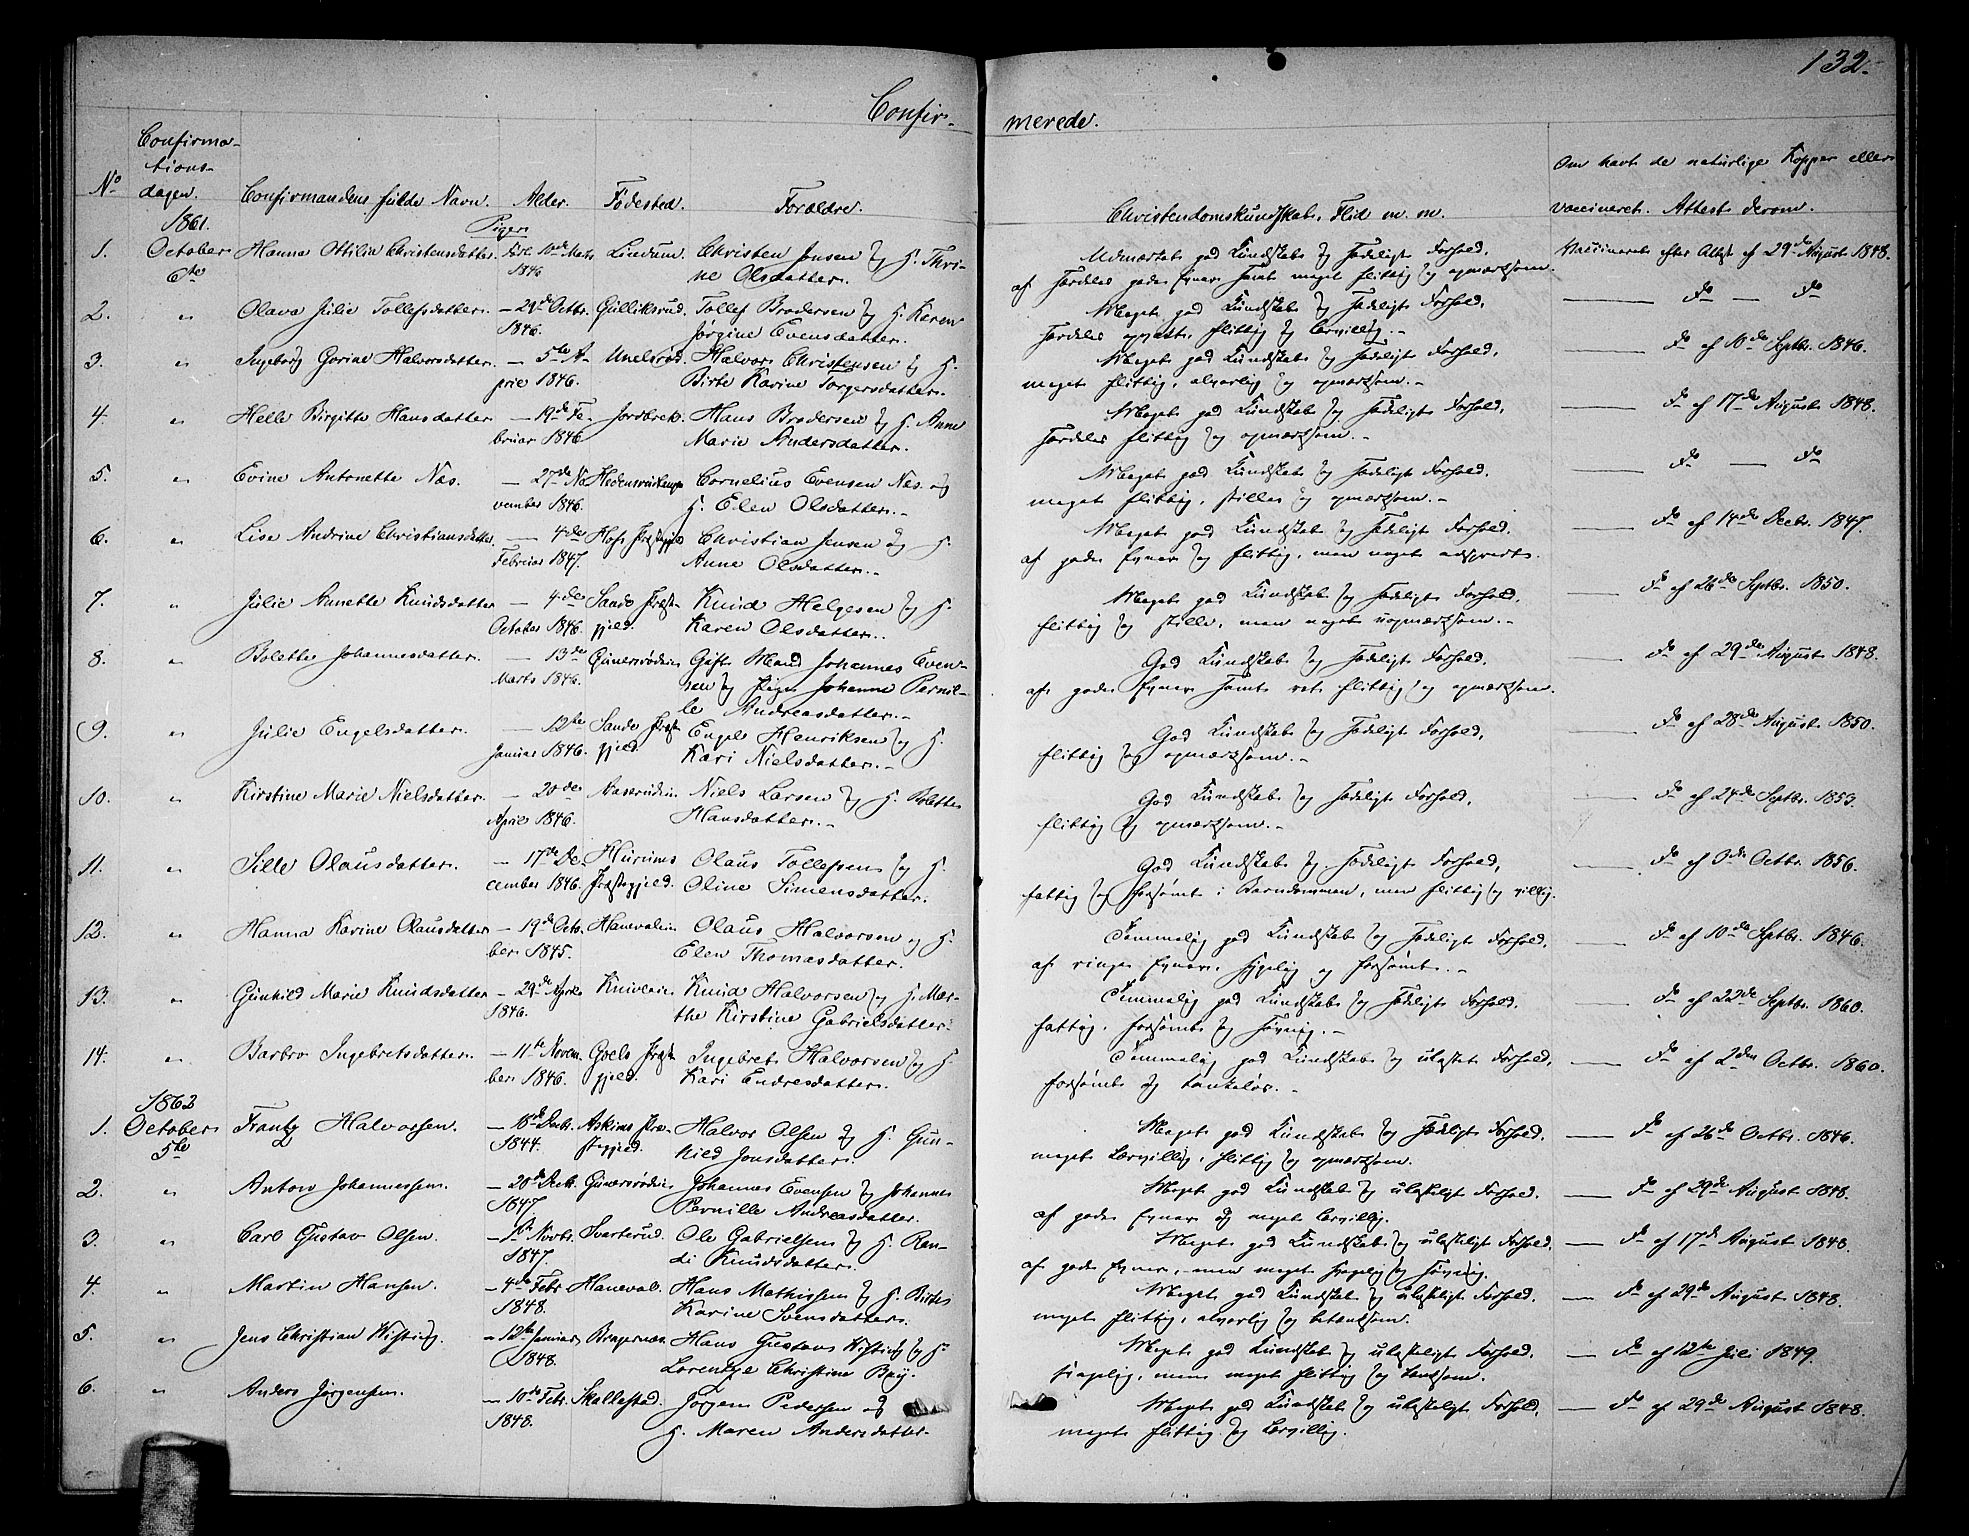 132.
Confir-
merede.
No
Confirma-
tions-
dagen.
Confirmandens fulde Navn.
Alder.
Fødested.
Forældre.
Christendomskundskab, Flid m. m.
Om havt de naturlige Kopper eller
vaccineret. Attest derom.
1861.
Piger.
1. October Hanna Ottilia Christensdatter. Født 10de Marts Lindum. Christen Jensen og H. Thri-
6te 1846 ne Olsdatter.
Udmærket god Kundskab og sædeligt Forhold, Vaccineret efter Attest af 29de August 1848.
af særdeles gode Evner samt meget flittig og opmærksom.
2. " Olava Julie Tollefsdatter. — 29de Octbr. Gulliksrud. Tollef Brodersen og H. Karen
1846. Jørgine Evensdatter.
Meget god Kundskab og sædeligt Forhold, — do — do
særdeles opvakt, flittig og lærvillig.-
3. " Ingeborg Gorine Halvorsdatter. — 5te A- Halvor Christensen og H.
pril 1846. Birte Karine Torgersdatter.
Meget god Kundskab og sædeligt Forhold, — do af 10de Septbr. 1846.
meget flittig, alvorlig og opmærksom.-
4. " Helle Birgitte Hansdatter — 19de Fe- Jordbræk. Hans Brodersen og H. Anne
bruar 1846 Marie Andersdatter.
Meget god Kundskab og sædeligt Forhold, — do af 17de August 1848.
særdeles flittig og opmærksom.-
5. " Evine Antonette Næs. — 27de No- Cornelius Evensen Næs og
vember 1846. H. Elen Olsdatter.-
Meget god Kundskab og sædeligt Forhold. — do — do
meget flittig, stille og opmærksom.-
6. " Lise Andrine Christiansdatter. — 4de Hofs Præstegjeld Christian Jensen og H.
Februar 1847. Anne Olsdatter.-
Meget god Kundskab og sædeligt Forhold. — do af 14de Decbr. 1847.
af gode Evner og flittig, men noget adspredt.
7. " Julie Annette Knudsdatter — 4de Sande Præste- Knud Helgesen og H.
October 1846. gjeld. Karen Olsdatter.
Meget god Kundskab og sædeligt Forhold, — do af 26de Septbr. 1850.
flittig og stille, men noget uopmærksom.-
8. " Bolette Johannesdatter. — 13de Gunersrødeie Gift Mand Johannes Even-
Marts 1846. sen og Pige Johanne Pernil-
le Andreasdatter.-
God Kundskab og sædeligt Forhold, — do af 29de August 1848.
af gode Evner samt ret flittig og opmærksom.
9. " Julie Engelsdatter. — 12te Sande Præste- Engel Henriksen og H.
Januar 1846. gjeld. Kari Nielsdatter.-
God Kundskab og sædeligt Forhold, — do af 28de August 1850.
flittig og opmærksom.-
10. " Kirstine Marie Nielsdatter. — 20de Niels Larsen og H. Bolette
April 1846. Hansdatter.-
God Kundskab og sædeligt Forhold, — do af 24de Septbr. 1853.
flittig og opmærksom.-
11. " Sille Olausdatter. — 17de De- Hurums Olaus Tollefsen og H.
cember 1846. Præstegjeld. Oline Simensdatter.
God Kundskab og sædeligt Forhold, — do af Octbr. 1856.
fattig og forsømt i Barndommen, men flittig og villig.
12. " Hanna Karine Olausdatter — 19de Octo- Hanevaleie Olaus Halvorsen og H.
ber 1845. Elen Thomasdatter.
Temmelig god Kundskab og sædeligt Forhold, — do af 10de Septbr. 1846.
af ringe Evner, sygelig og forsømt.-
13. " Gunhild Marie Knudsdatter — 29de April Kniveeie Knud Halvorsen og H. Mar-
1846. the Kirstine Gabrielsdatter.
Temmelig god Kundskab og sædeligt Forhold. — do af 22de Septbr. 1860.
fattig, forsømt og søvnig.-
14. " Barbro Ingebretsdatter. — 11te Novem- Goels Præste- Ingebret Halvorsen og H.
ber 1846. gjeld. Kari Endresdatter.
Temmelig god Kundskab og ulastet Forhold, — do af 2den Octbr. 1860.
forsømt og tankeløs.-
1862
1. October Frantz Halvorsen. — 18de Decbr. Askims Præ- Halvor Olsen og H. Gun-
5te 1844. stegjeld. hild Jonsdatter.
Meget god Kundskab og sædeligt Forhold. — do af 26de Octbr. 1846.
meget lærvillig, flittig og opmærksom.
2. " Anton Johannessen. — 20de Decbr. Gunersrødeie Johannes Evensen og Johanne
1847. Pernille Andreasdatter.
Meget god Kundskab og ulasteligt Forhold. — do af 29de August 1848.
af gode Evner og meget lærvillig.
3. " Carl Gustav Olsen. Novbr. Svarterud. Ole Gabrielsen og H. Ran-
1847. di Knudsdatter.
Meget god Kundskab og ulasteligt Forhold. — do af 17de August 1848.
af gode Evner, men meget svagelig og søvnig.
4. " Martin Hansen. — 4de Febr. Haneval. Hans Mathissen og H. Birte
1848. Karine Svensdatter.
Meget god Kundskab og ulasteligt Forhold. — do af 29de August 1848.
meget flittig, alvorlig og betænksom.
5. " Jens Christian Kisting. — 12te Januar Bragernæs. Hans Gustav Kisting og H.
1848. Lorentze Christine Bay.
Meget god Kundskab og ulasteligt Forhold. — do af 12te Juli 1849.
svagelig, men meget flittig og tænksom.
6. " Anders Jørgensen. — 10de Febr. Skallestad. Jørgen Pedersen og
1848. H. Maren Andersdatter.
Meget god Kundskab og ulasteligt Forhold, — do af 29de August 1848.
meget flittig og lærvillig.